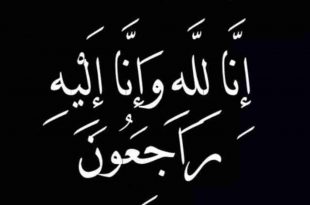 إِنَّا لِلَّٰهِ وَإِنَّا إِلَيْهِ
رَاجَعُونَ